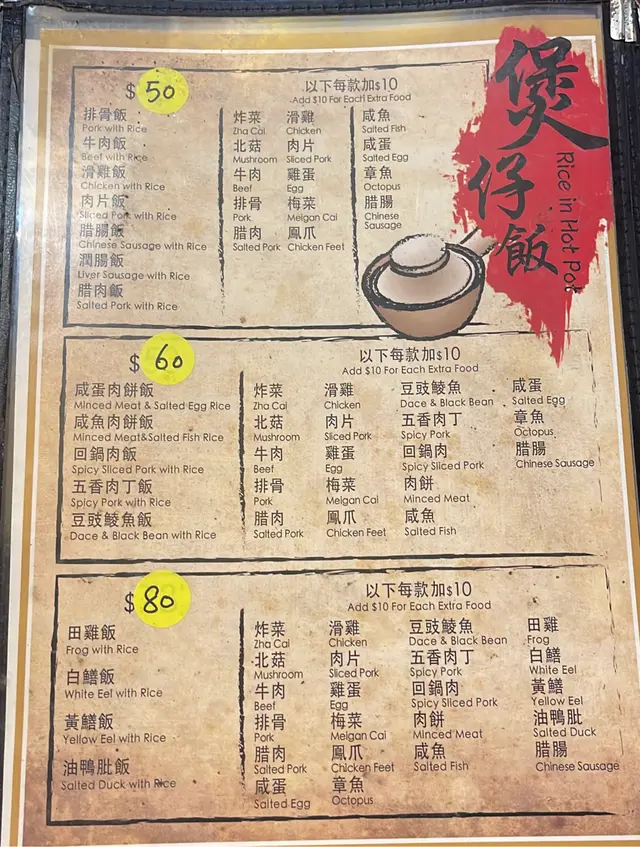 煲仔飯
Rice in Hot Pot
$ 50
排骨飯
Pork with Rice
牛肉飯
Beef with Rice
滑雞飯
Chicken with Rice
肉片飯
Sliced Pork with Rice
腊腸飯
Chinese Sausage with Rice
潤腸飯
Liver Sausage with Rice
腊肉飯
Salted Pork with Rice
以下每款加$10
Add $10 For Each Extra Food
炸菜 滑雞 咸魚
Zha Cai Chicken Salted Fish
北菇 肉片 咸蛋
Mushroom Sliced Pork Salted Egg
牛肉 雞蛋 章魚
Beef Egg Octopus
排骨 梅菜 腊腸
Pork Meigan Cai Chinese Sausage
腊肉 鳳爪
Salted Pork Chicken Feet
$ 60
咸蛋肉餅飯
Minced Meat & Salted Egg Rice
咸魚肉餅飯
Minced Meat&Salted Fish Rice
回鍋肉飯
Spicy Sliced Pork with Rice
五香肉丁飯
Spicy Pork with Rice
豆豉鯪魚飯
Dace & Black Bean with Rice
以下每款加$10
Add $10 For Each Extra Food
炸菜 滑雞 豆豉鯪魚 咸蛋
Zha Cai Chicken Dace & Black Bean Salted Egg
北菇 肉片 五香肉丁 章魚
Mushroom Sliced Pork Spicy Pork Octopus
牛肉 雞蛋 回鍋肉 腊腸
Beef Egg Spicy Sliced Pork Chinese Sausage
排骨 梅菜 肉餅
Pork Meigan Cai Minced Meat
腊肉 鳳爪 咸魚
Salted Pork Chicken Feet Salted Fish
$ 80
田雞飯
Frog with Rice
白鱔飯
White Eel with Rice
黃鱔飯
Yellow Eel with Rice
油鴨肶飯
Salted Duck with Rice
以下每款加$10
Add $10 For Each Extra Food
炸菜 滑雞 豆豉鯪魚 田雞
Zha Cai Chicken Dace & Black Bean Frog
北菇 肉片 五香肉丁 白鱔
Mushroom Sliced Pork Spicy Pork White Eel
牛肉 雞蛋 回鍋肉 黃鱔
Beef Egg Spicy Sliced Pork Yellow Eel
排骨 梅菜 肉餅 油鴨肶
Pork Meigan Cai Minced Meat Salted Duck
腊肉 鳳爪 咸魚 腊腸
Salted Pork Chicken Feet Salted Fish Chinese Sausage
咸蛋 章魚
Salted Egg Octopus